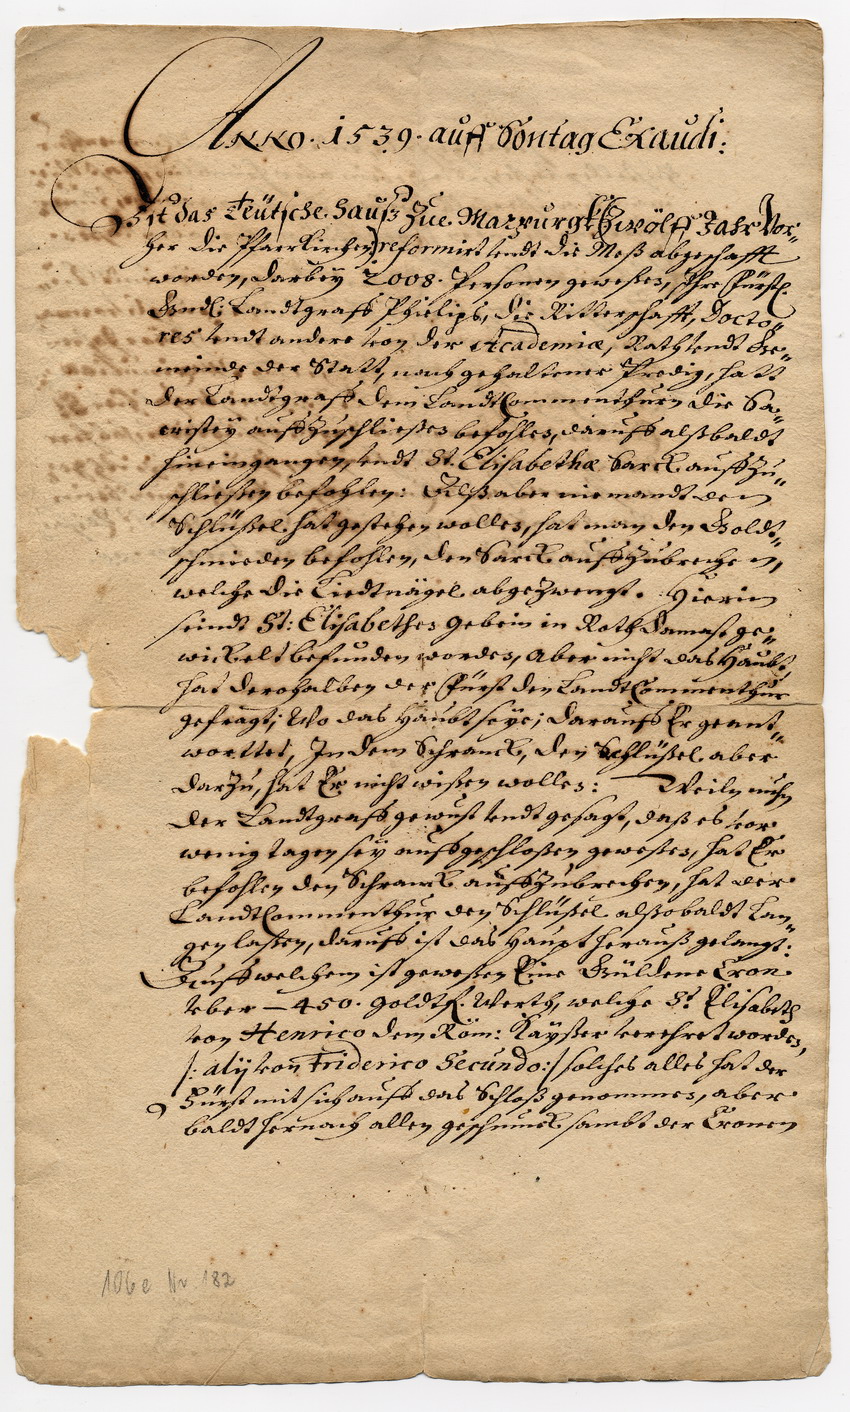 Anno. 1539. auff Sontag Exaudi:
Ist das Teütsche Hauß Zue Marpurgk (Zwölff Jahr Vor-
her die Pfarr Kirchen) reformirt undt die Meß abgeschafft
worden, darbey 2008. Personen geweßen, Ihre Fürstl.
Gndl: Landtgraff Philips, die Ritterschafft, Docto-
res undt andere von der Academiæ, Rath undt Ge-
meinde der Statt, nach gehaltener Predig, hatt
der Landtgraff dem LandtCommenthurn die Sa-
cristey auffZuschließen befohlen, daruff alßbaldt
hineingangen, undt St. Elisabethæ Sarck auffZu-
schließen befohlen: Alß aber niemandt dem
Schlüßel hat gestehen wollen, hat man den Goldt-
schmieden befohlen, den Sarck auffZubrechen,
welche die Niedtnägel abgezwengt. Hierin
seindt St: Elisabethen Gebein in Roth Damast ge-
wickelt befunden worden, Aber nicht das Haubt,
hat derohalben der Fürst den LandtCommenthur
gefragt, Wo das Haubt seye; darauff Er geant-
worttet, In dem Schranck, den Schlüßel aber
darzu, hat Er nicht wißen wollen: Weiln nuhn
der Landtgraff gewust undt gesagt, daß es vor
wenig tagen sey auffgeschloßen geweßen, hat Er
befohlen den Schranck auffZubrechen, hat der
LandtCommenthur den Schlüßel alßobaldt lan-
gen laßen, daruff ist das Haupt herauß gelangt:
Auff welchem ist gewesen Eine Güldene Cron
uber - 450. goldtfl. Werth, welche St Elisabeth
von Henrico dem Röm: Kayßer verehret worden,
/: alij von Friderico Secundo:/ solches alles hat der
Fürst mit sich auff das Schloß genommen, aber
baldt hernach allen geschmuck sambt der Cronen
106 e Nr 182